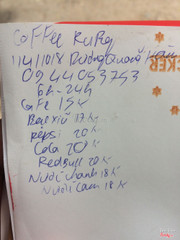 Coffee Ruby
114/1018 Đường Quang Hàm
0944053753
6h-24h
Cafe 15k
Bạc xỉu 17k
pepsi 20k
Cola 20k
Redbull 20k
Nước chanh 18k
Nước cam 18k